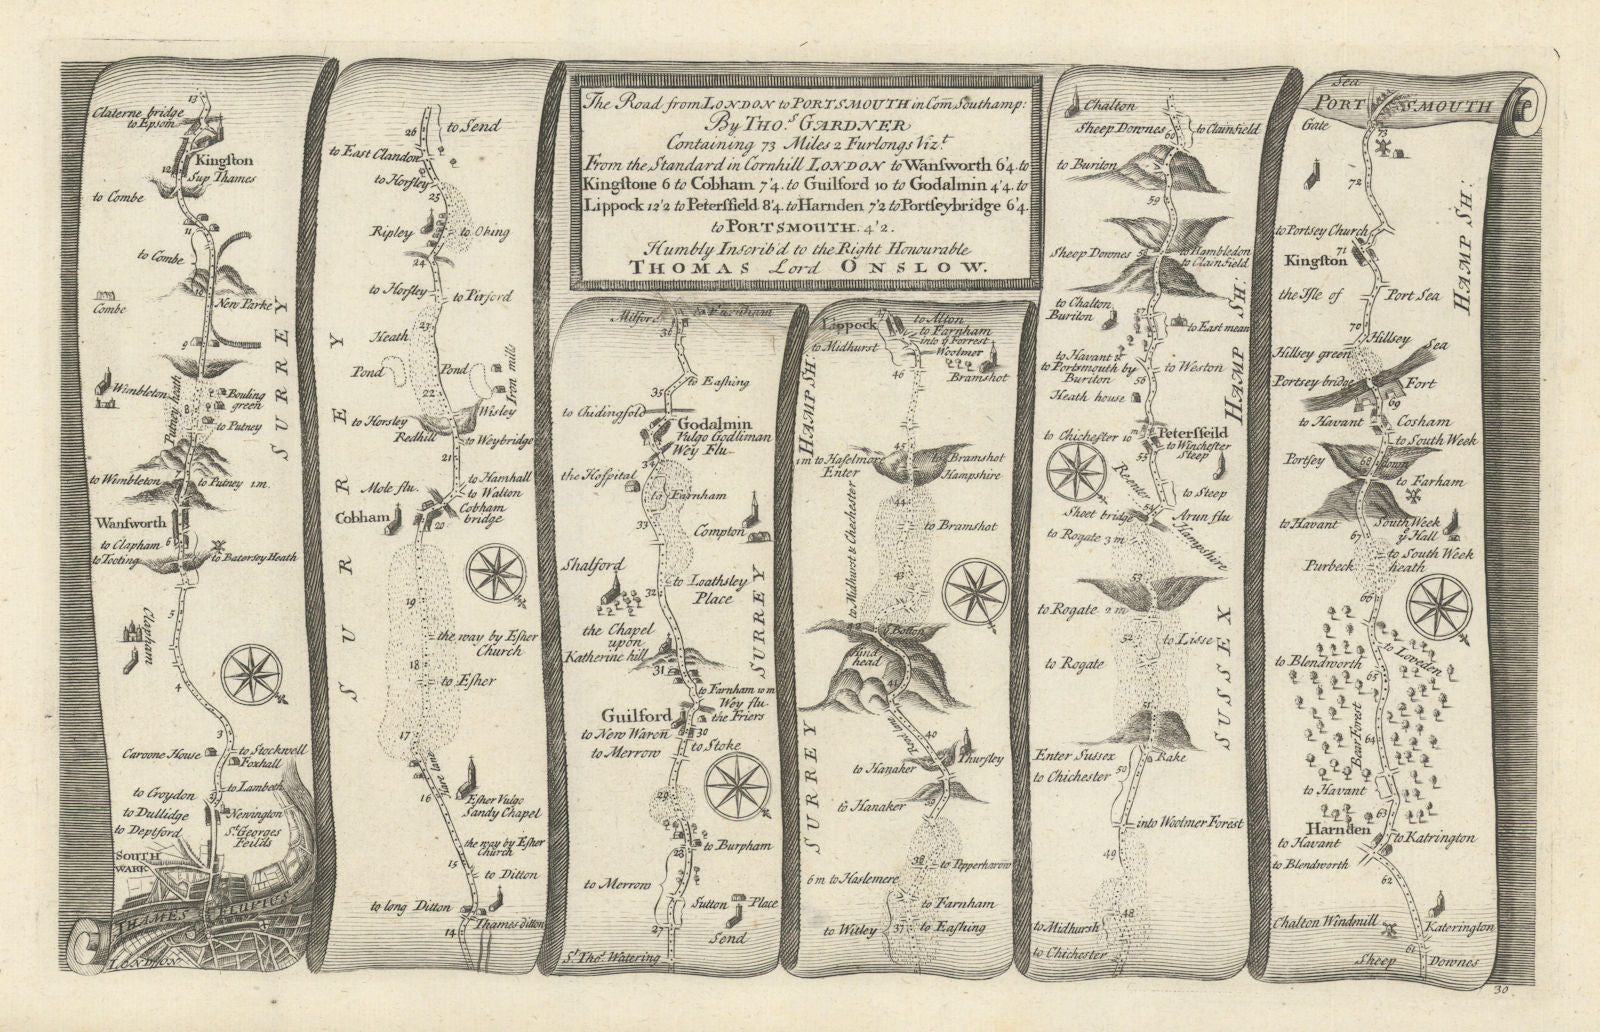 The Road from LONDON to PORTSMOUTH in Com Southamp:
By THO.S GARDNER
Containing 73 Miles 2 Furlongs Viz.t
From the Standard in Cornhill LONDON to Wansworth 6'4. to
Kingstone 6 to Cobham 7'4. to Guilford 10 to Godalmin 4'4. to
Lippock 12'2 to Petersfield 8'4. to Harnden 7'2 to Portseybridge 6'4.
to PORTSMOUTH. 4'2.
Humbly Inscrib'd to the Right Honourable
THOMAS Lord ONSLOW.
13
Claterne bridge
to Epsom
Kingston
Sup Thames
12
to Combe
11
to Combe
10
New Parke
Combe
9
SURREY
Wimbleton
Putney heath
Bouling
green
8
to Putney
to Wimbleton
to Putney 1 m.
Wansworth
to Clapham
6
to Tooting
to Batersey Heath
5
Clapham
4
3
Caroone House
to Stockwell
Foxhall
to Lambeth
to Croydon
to Dullidge
Newington
to Deptford
St. Georges
Feilds
SOUTH
WARK
THAMES FLUVIUS
LONDON
26
to Send
to East Clandon
to Horsley
25
Ripley
to Obing
24
to Horsley
to Pirford
23
Heath
Pond
Pond
Iron mills
22
Wisley
to Horsley
Redhill
to Weybridge
21
SURREY
Mole flu.
to Hamhall
to Walton
Cobham
Cobham
bridge
20
19
the way by Esher
Church
18
to Esher
17
Jure lane
16
Esher Vulgo
Sandy Chapel
the way by Esher
Church
15
to Ditton
to long Ditton
Thames ditton
14
Milford
to Farnham
36
to Eashing
35
to Chidingfold
Godalmin
Vulgo Godliman
Wey Flu.
34
the Hospital
to Farnham
33
Compton
Shalford
to Loathsley
Place
32
SURREY
the Chapel
upon
Katherine hill
31
to Farnham 10 m
Wey flu.
Guilford
the Friers
to New Waren
30
to Merrow
to Stoke
29
28
to Burpham
to Merrow
Sutton Place
27
Send
St. Thos. Watering
Lippock
47
to Alton
to Farnham
into ye Forrest
Woolmer
to Midhurst
46
Bramshot
HAMP SH:
45
1 m to Haselmore
to Bramshot
Enter
Hampshire
44
to Midhurst & Chechester
to Bramshot
43
42
ye Bottom
Hind
head
41
SURREY
40
Thursley
to Hanaker
to Hanaker
39
38
to Pepperharow
6 m to Haslemere
to Farnham
to Witley
37
to Eashing
Chalton
Sheep Downes
60
to Clainfield
to Buriton
59
Sheep Downes
58
to Hambledon
to Clainfield
to Chalton
Buriton
57
to East mean
HAMP SH:
to Havant &
to Portsmouth by
Buriton
to Weston
56
Heath house
to Chichester 10 m
Petersfeild
to Winchester
Steep
55
Reenter
Hampshire
to Steep
54
Sheet bridge
Arun flu
to Rogate 3 m
53
to Rogate 2 m
52
to Lisse
to Rogate
SUSSEX
51
Enter Sussex
Rake
to Chichester
50
into Woolmer Forest
49
48
to Midhursh
to Chichester
Sea
PORTSMOUTH
Gate
73
72
to Portsey Church
71
Kingston
the Isle of
Port Sea
HAMP SH:
70
Hillsey
Hillsey green
Sea
Portsey bridge
Fort
69
to Havant
Cosham
to South Week
Portsey
68
Down
to Farham
to Havant
South Week
ye Hall
67
to South Week
heath
Purbeck
66
to Blendworth
to Loveden
65
Bear Forest
64
to Havant
63
Harnden
to Havant
to Katrington
to Blendworth
62
Chalton Windmill
Katerington
61
Sheep
Downes
30